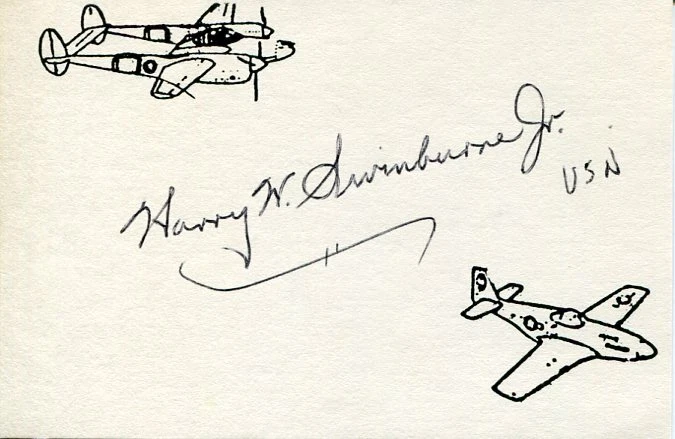 Harry W. Swinburne Jr.
USN